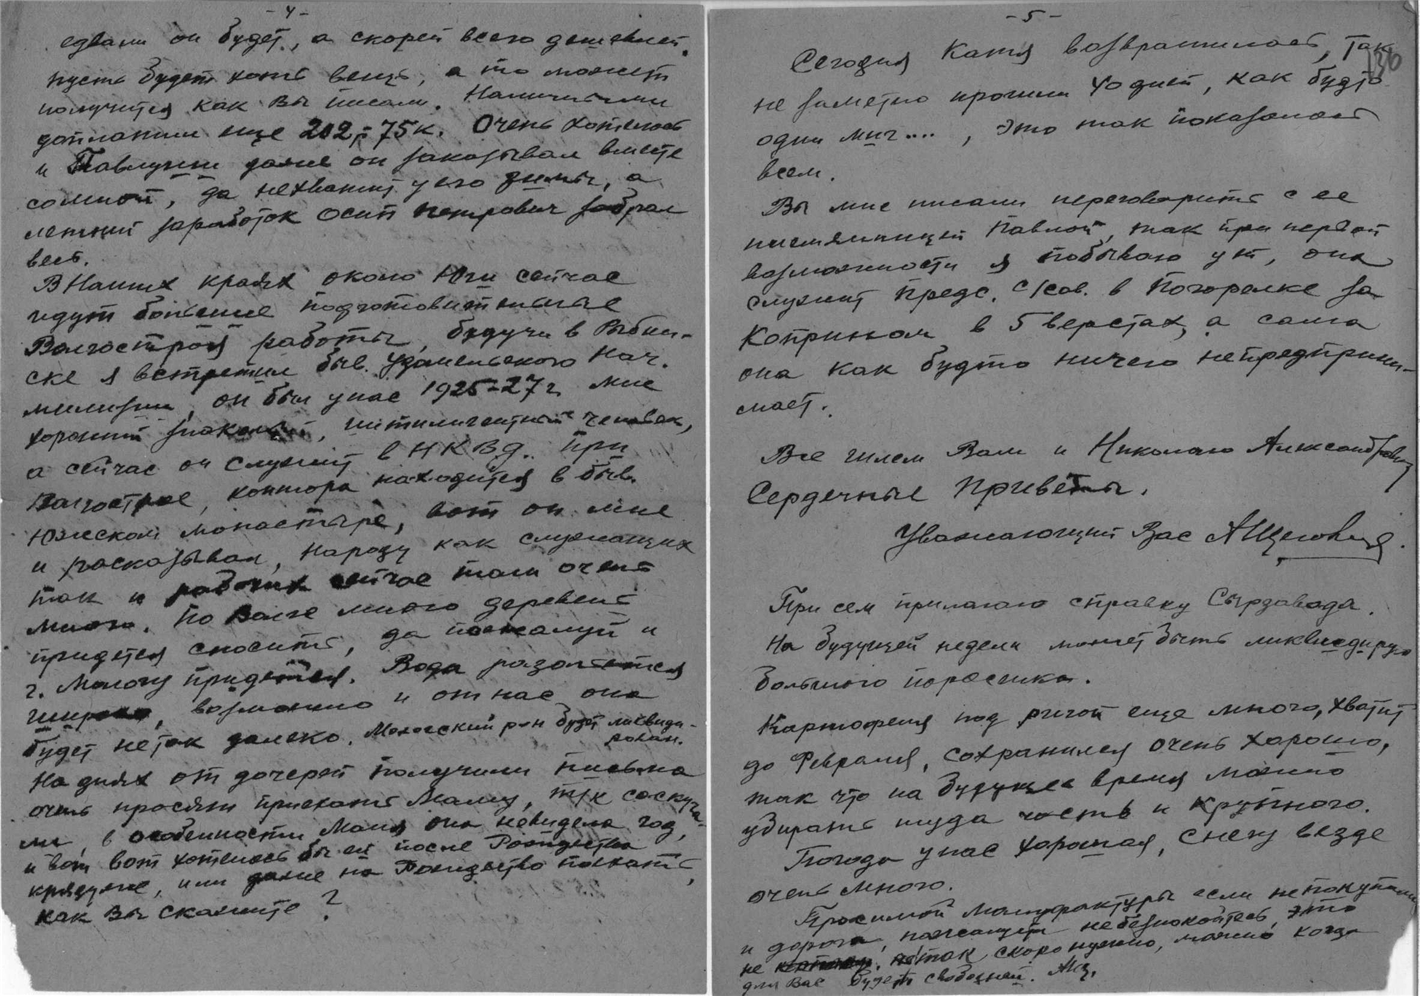 -4-
едвали он будет, а скорей всего дешевле.
пусть будет хоть вещь, а то может
получится как Вы писали. Наличными
доплатили еще 202,=75к. Очень хотелось
и Павлуши даже он заказывал вместе
сомной, да нехватит у его зимы, а
летний заработок Осип Петрович забрал
весь.
В Наших краях около Юги сейчас
идут большие подготовительные
Волгострой работы, будучи в Рыбин-
ске я встретил быв. Удомельского Нач.
милиции, он был у нас 1925-27 г. мне
хороший знакомый, интилигентный человек,
а сейчас он служит в НКВД. при
Волгострое, контора находится в быв.
Южском монастыре, вот он мне
и расказывал, народу как служащих
так и рабочих сейчас там очень
много. По Волге много деревень
придется сносить, да пожалуй и
г. Мологу придется. Вода разольется
широко, возможно и от нас она
будет нетак далеко. Мологский рон будет ликвиди-
рован.
На днях от дочерей получили письма
очень просят приехать Маму, т/к соскучи-
ли, в особенности Маня она невидела год,
и вот вот хотелось бы ей после Рождества
крядуче, или даже на Рождество поехать,
как Вы скажите?
-5-
136
Сегодня Катя возвратилась, так
не заметно прошли 40 дней, как будто
один миг...., это так показалось
всем.
Вы мне писали переговорить с ее
племянницей Павлой, так при первой
возможности я побываю у ней, она
служит предс. с/сов. в Погорелке за
Коприном в 5 верстах, а сама
она как будто ничего непредприни-
мает.
Все шлем Вам и Николаю Александровичу
Сердечные Приветы.
Уважающий Вас АЩегловит.
При сем прилагаю справку Сырзавода.
На будущей недели может быть ликвиедирую
большого поросенка.
Картофеля под ригой еще много, хватит
до Февраля, сохранился очень хорошо,
так что на будущее время можно
убирать туда часть и крупного.
Погода у нас хорошая, снегу везде
очень много.
Просимой мануфактуры если непокупали
и дорога, пожалуйст небезпокойтесь, это
не так скоро нужно, можно когда
для Вас будет свободней. АЩ.